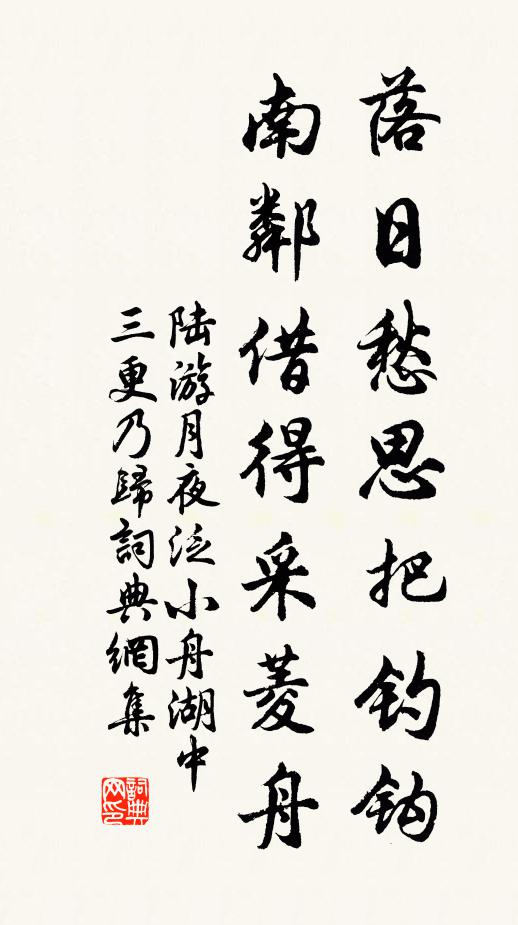 落日愁思把钓钩
南鄰借得采菱舟
陆游月夜泛小舟湖中
三更乃歸詞典網集
詞典网印